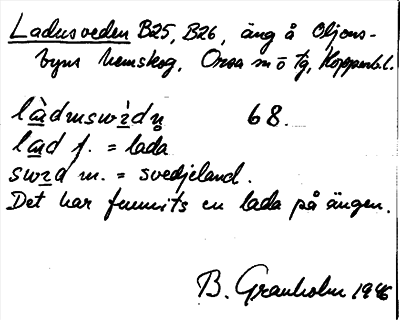 Ladusveden B25, B26, äng å Oljons-
byns hemskog, Orsa sn ö tg, Kopparb. l.
làdusẁdn 68.
lad f. = lada
swɛd m. = svedjeland.
Det har funnits en lada på ängen.
B. Granholm 1946